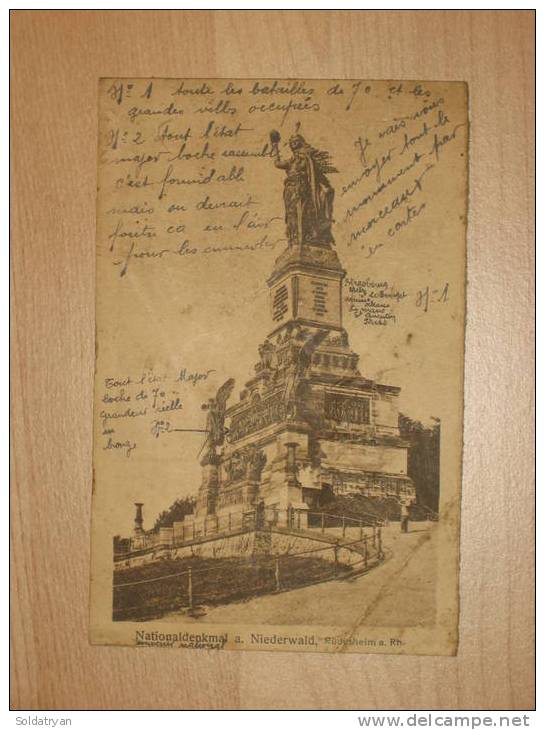 No 1 toute les batailles de 70 et les
grandes villes occupées
No 2 tout l'état
major boche rassemblé
c'est formidable
mais on devrait
foutre ça en l'air
pour les emmerder
Je vais vous
envoyer tout le
monument par
morceaux
en cartes
Strasbourg
Metz le Bourget
No 1
Le mans
St Quentin
Tout l'état Major
boche de 70
grandeur réelle
en No 2
bronze
Nationaldenkmal a. Niederwald, Rüdesheim a. Rh.
national
Soldatryan
http://www.delcampe.net